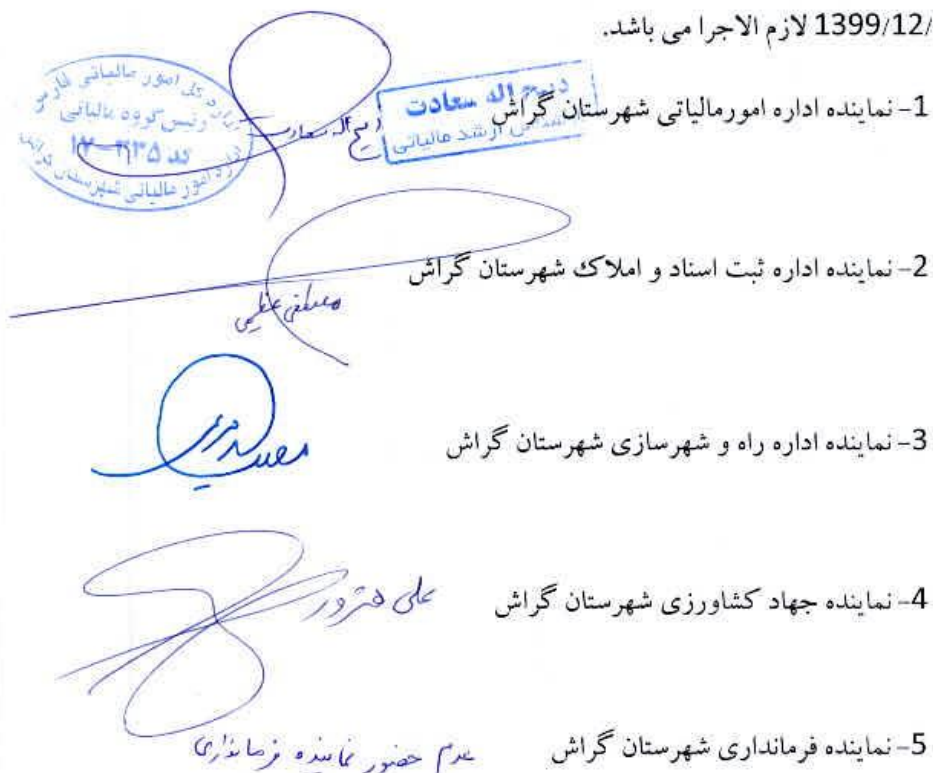 /1399/12 لازم الاجرا می باشد.
1- نماینده اداره امورمالیاتی شهرستان گراش
ذبیح اله سعادت
ارشد مالیاتی
ذبیح اله سعادت
اداره کل امور مالیاتی فارس
رئیس گروه مالیاتی
کد
اداره امور مالیاتی شهرستان گراش
2- نماینده اداره ثبت اسناد و املاک شهرستان گراش
مصطفی عظیمی
3- نماینده اداره راه و شهرسازی شهرستان گراش
4- نماینده جهاد کشاورزی شهرستان گراش
علی هنرور
5- نماینده فرمانداری شهرستان گراش
عدم حضور نماینده فرمانداری